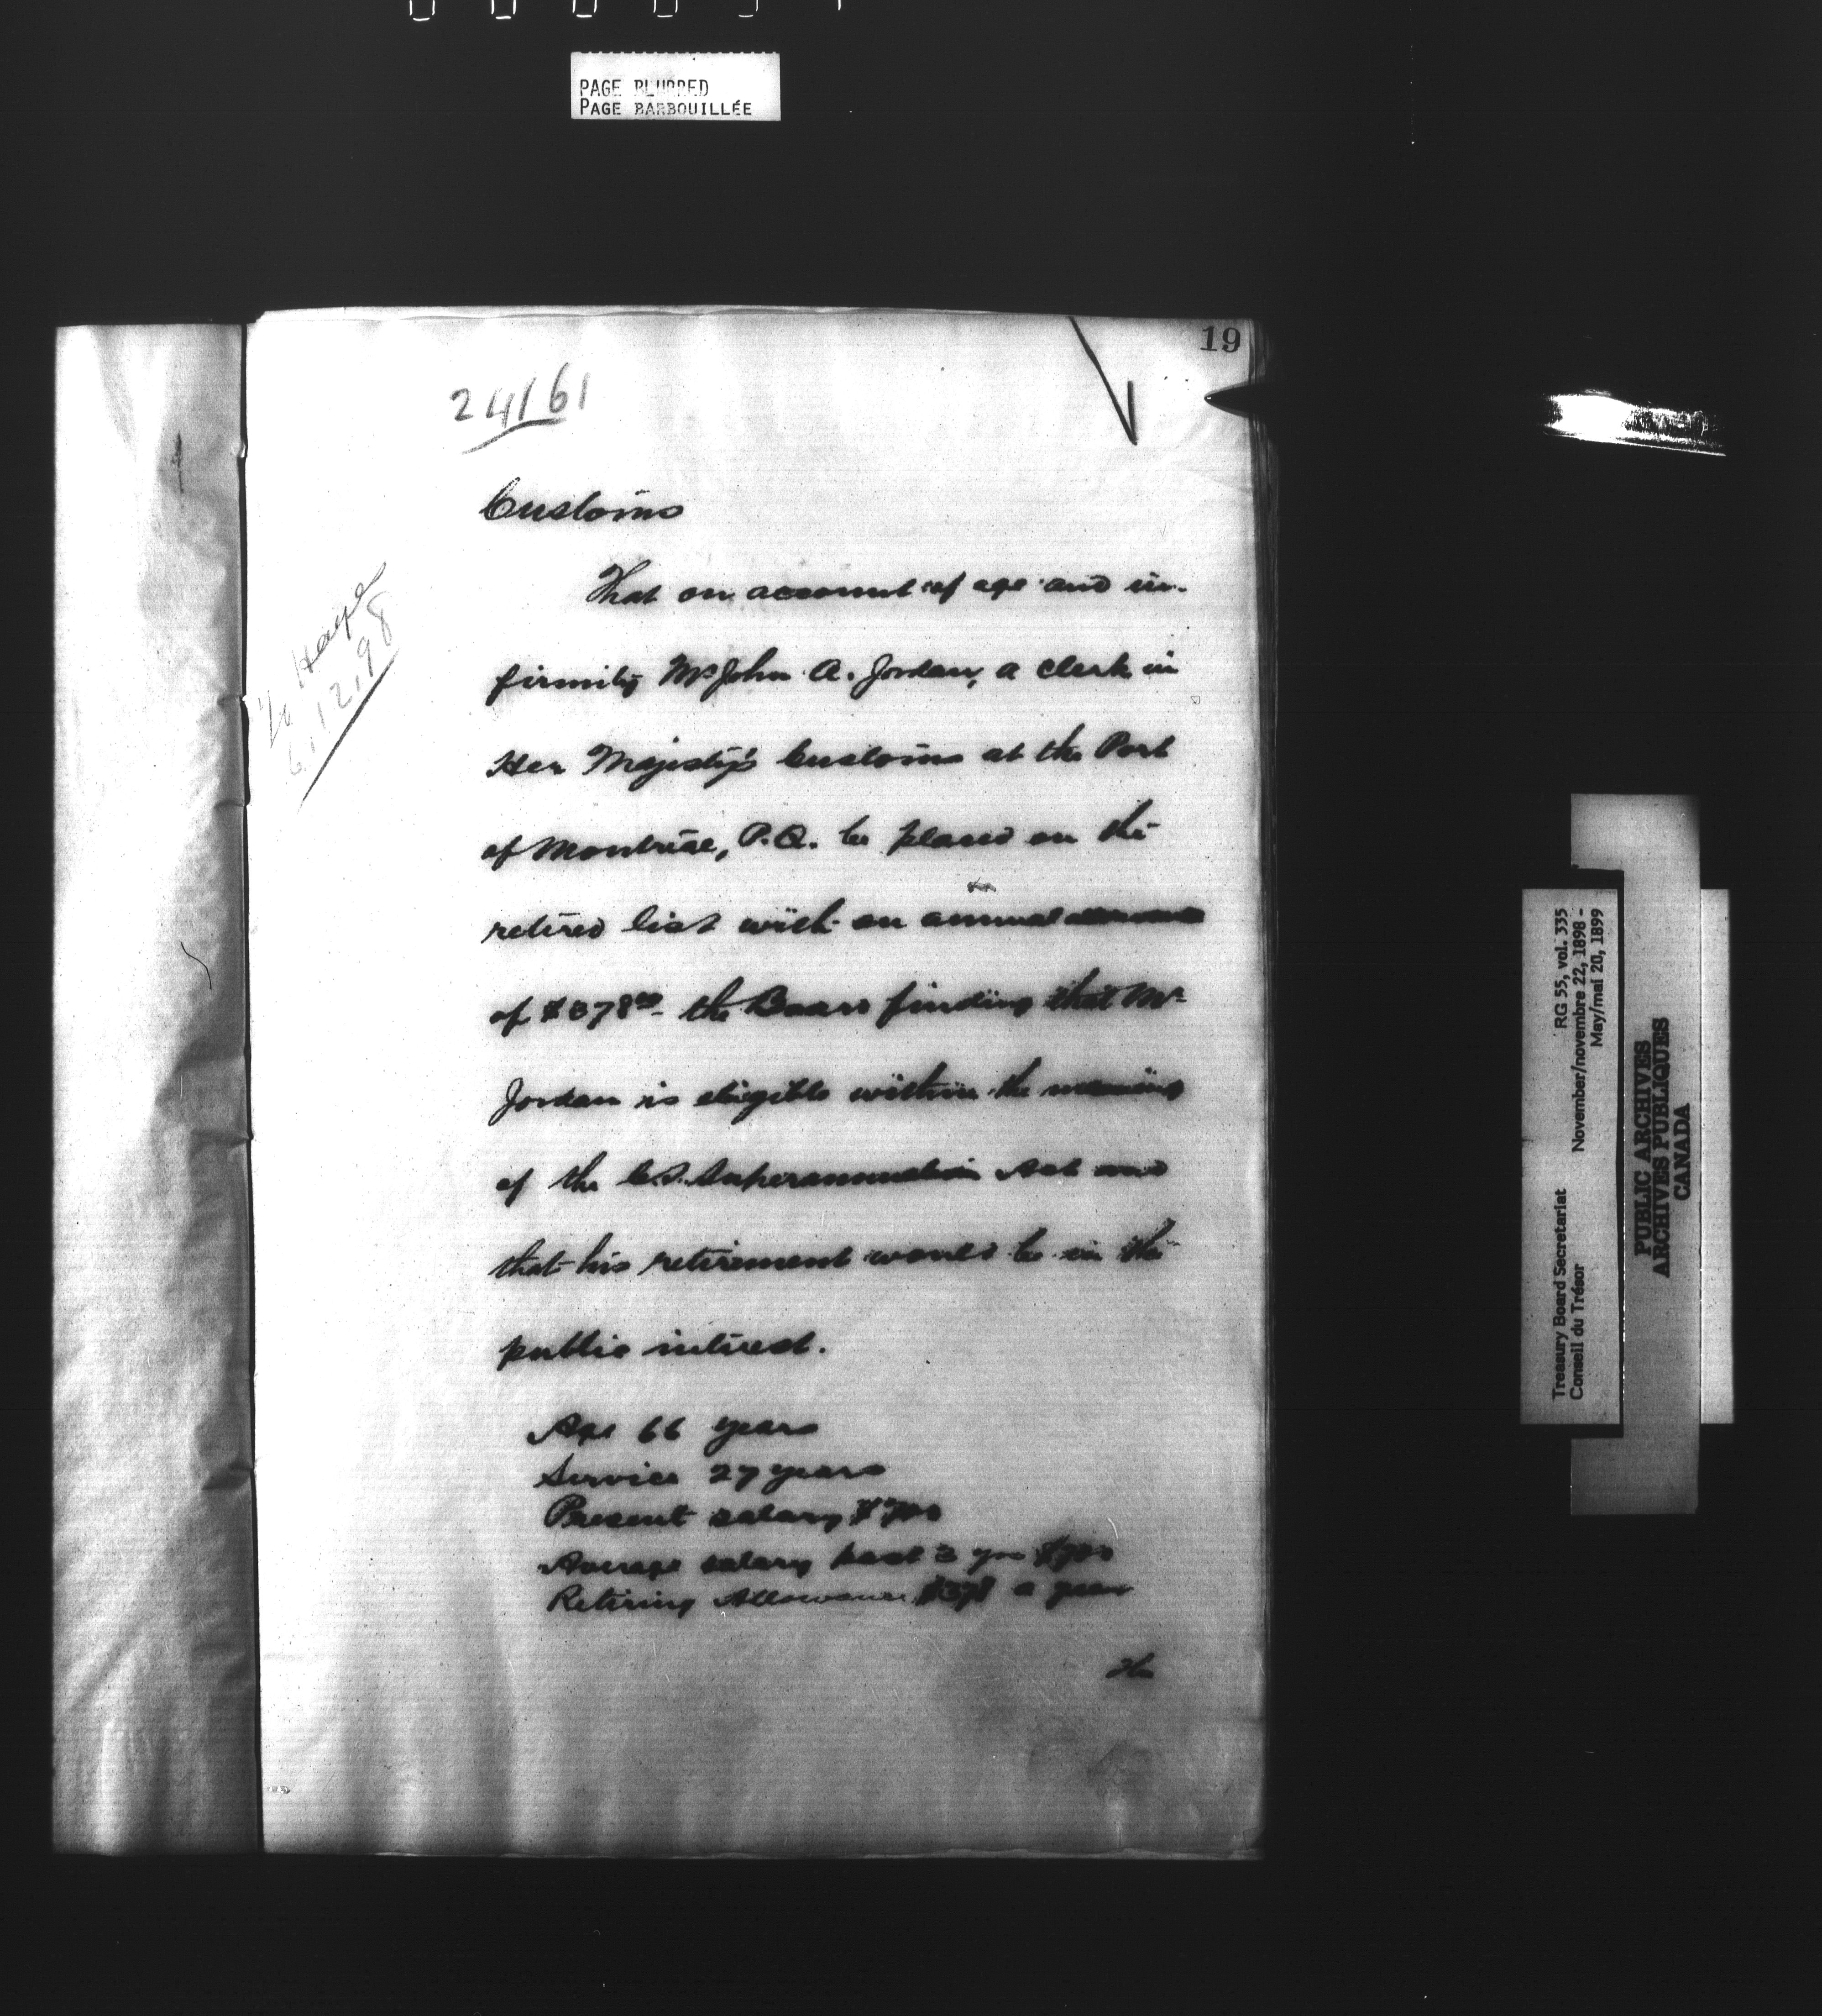 PAGE BLURRED
PAGE BARBOUILLÉE
19
24161
Customs
That on account of age and in-
firmity Mr John A. Jordan, a clerk in
Her Majesty's Customs at the Port
of Montreal, P.Q. be placed on the
retired list with an annual allowance
of $378.00 the Board finding that Mr
Jordan is eligible within the meaning
of the C.S. Superannuation Act and
that his retirement would be in the
public interest.
Age 66 years
Service 27 years
Present salary $700
Average salary past 3 yrs $700
Retiring Allowance $378 a year
6.12.98
Treasury Board Secretariat RG 55, vol. 335
Conseil du Trésor November/novembre 22, 1898 -
May/mai 20, 1899
PUBLIC ARCHIVES
ARCHIVES PUBLIQUES
CANADA